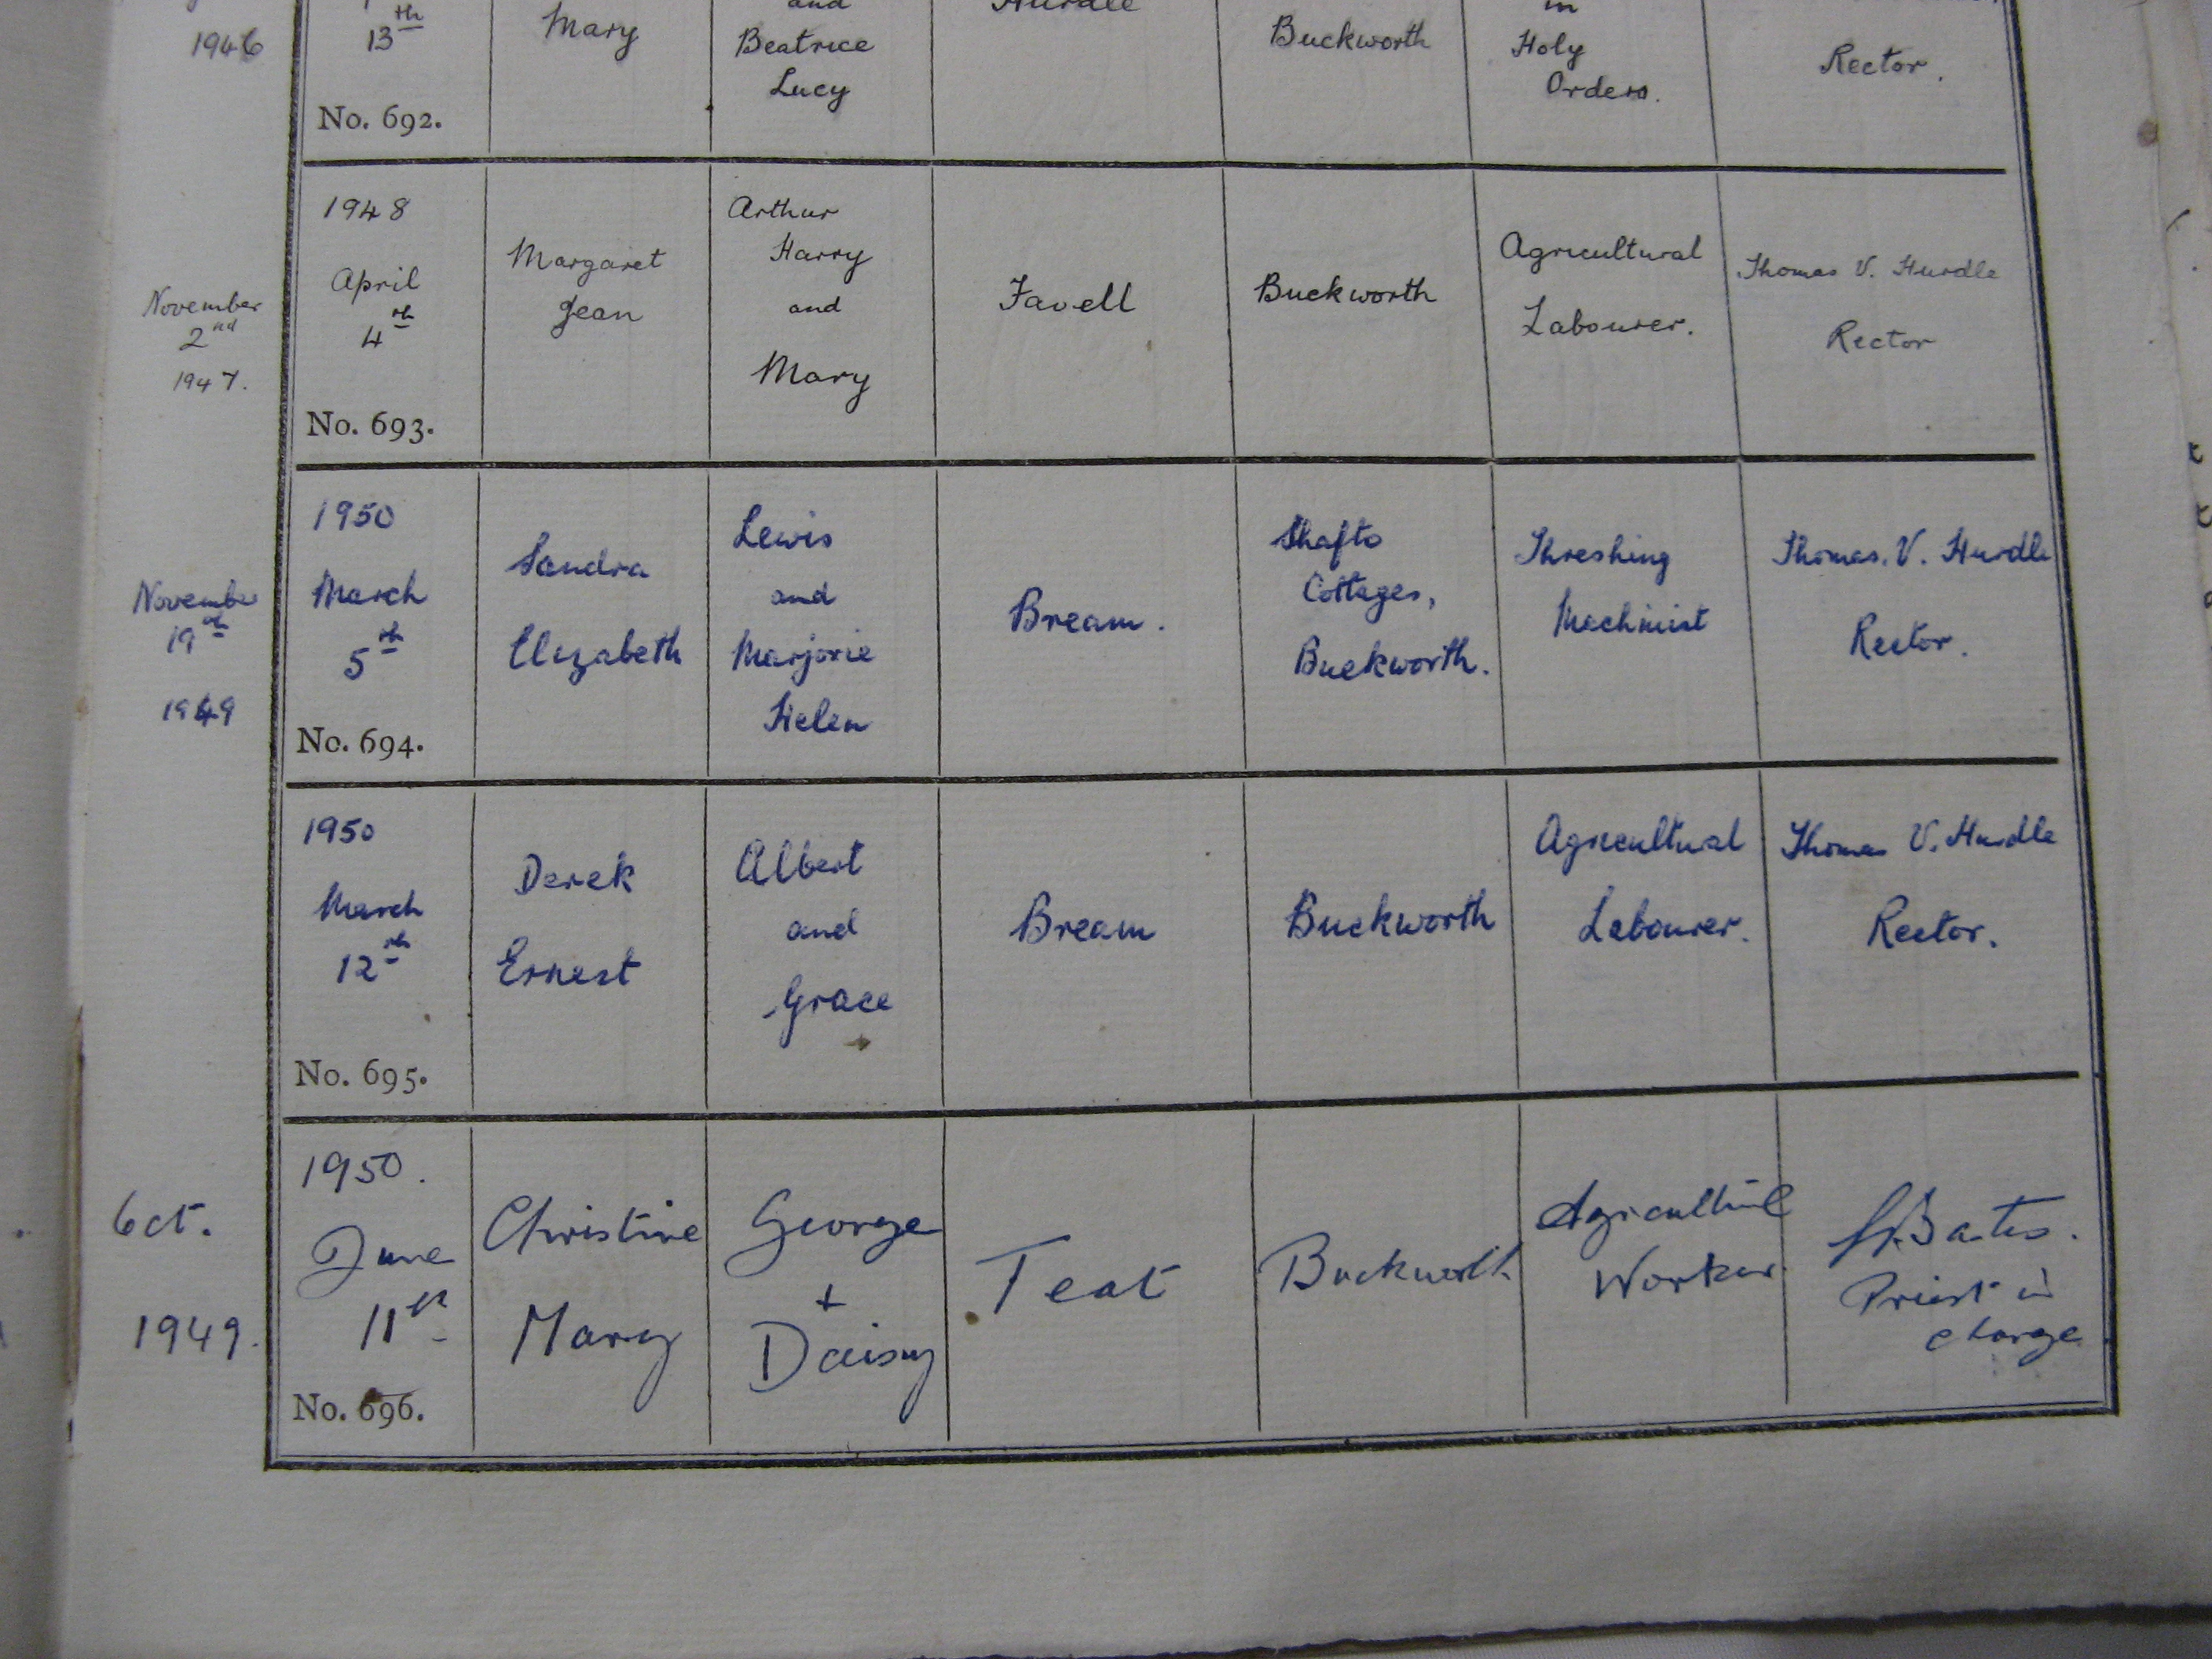 and
Hurdle
in
1946
13th
Mary
Beatrice
Lucy
Buckworth
Holy
Orders.
Rector.
No. 692.
November
2nd
1947.
1948
April
4th
No. 693.
Margaret
Jean
Arthur
Harry
and
Mary
Favell
Buckworth
Agricultural
Labourer.
Thomas V. Hurdle
Rector
November
19th
1949
1950
March
5th
No. 694.
Sandra
Elizabeth
Lewis
and
Marjorie
Helen
Bream.
Shafto
Cottages,
Buckworth.
Threshing
Machinist
Thomas. V. Hurdle
Rector.
1950
March
12th
No. 695.
Derek
Ernest
Albert
and
Grace
Bream
Buckworth
Agricultural
Labourer.
Thomas V. Hurdle
Rector.
Oct.
1949.
1950.
June
11th
No. 696.
Christine
Mary
George
+
Daisy
Teat
Buckworth
Agricultural
Worker
Bates.
Priest in
charge